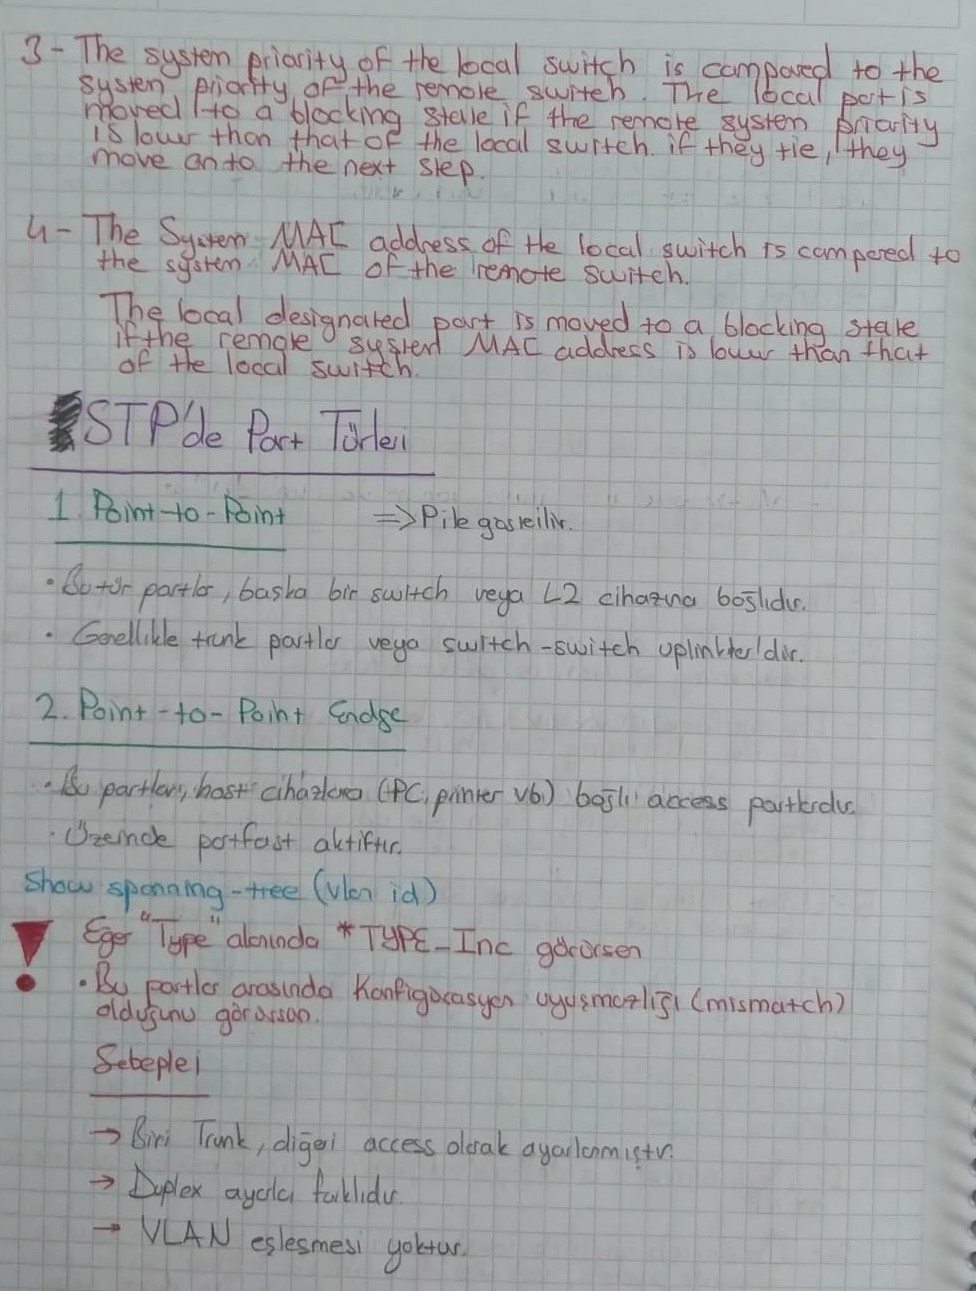 3- The system priority of the local switch is compared to the
system priority of the remote switch. The local port is
moved to a blocking state if the remote system priority
is lower than that of the local switch. if they tie, they
move on to the next step.
4- The System MAC address of the local switch is compared to
the system MAC of the remote switch.
The local designated port is moved to a blocking state
if the remote system MAC address is lower than that
of the local switch.
STP'de Port Türleri
1. Point-to-Point => P2P ile gösterilir.
• Bu tür portlar, başka bir switch veya L2 cihazına bağlıdır.
• Genellikle trunk portlar veya switch-switch uplinkter'dir.
2. Point-to-Point Endge
• Bu portlar, host cihazlara (PC, printer vb) bağlı access portlardır.
• Üzerinde portfast aktiftir.
Show spanning-tree (vlan id)
! Eğer "Type" alanında *TYPE_Inc görürsen
• Bu portlar arasında Konfigürasyon uyuşmazlığı (mismatch)
olduğunu görürsün.
Sebepleri
→ Biri Trunk, diğeri access olarak ayarlanmıştır.
→ Duplex ayarları farklıdır.
→ VLAN eşleşmesi yoktur.